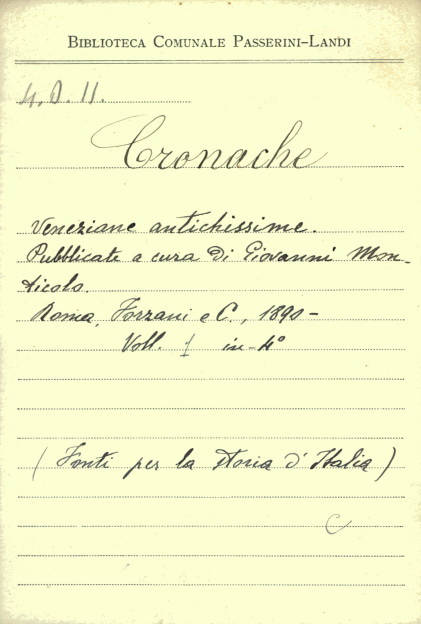 BIBLIOTECA COMUNALE PASSERINI-LANDI
4.D.11.
Cronache
Veneziane antichissime.
Pubblicate a cura di Giovanni Mon-
ticolo.
Roma, Forzani e C., 1890-
Voll. 1 in-4°
(Fonti per la storia d'Italia)
C